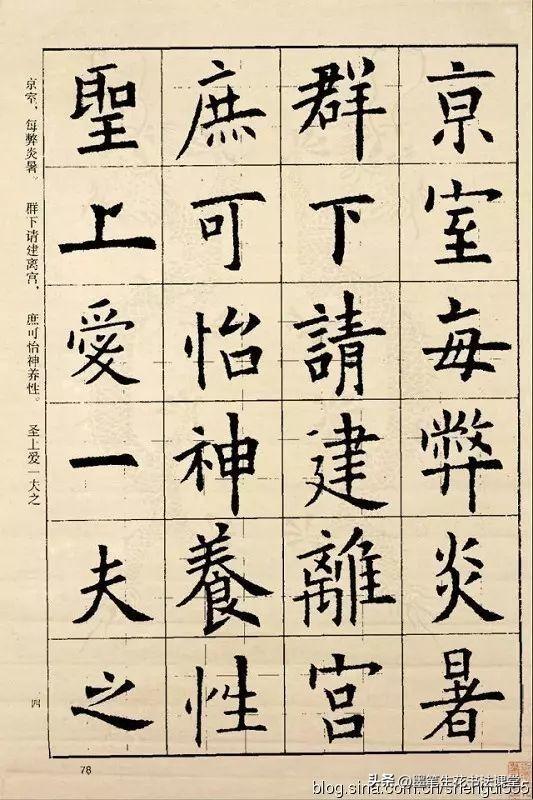 京室每弊炎暑
群下請建離宮
庶可怡神養性
聖上愛一夫之
京室，每弊炎暑。 群下请建离宫， 庶可怡神养性。 圣上爱一夫之
四
78
头条 @墨笔生花书法课堂
blog.sina.com.cn/shengui555